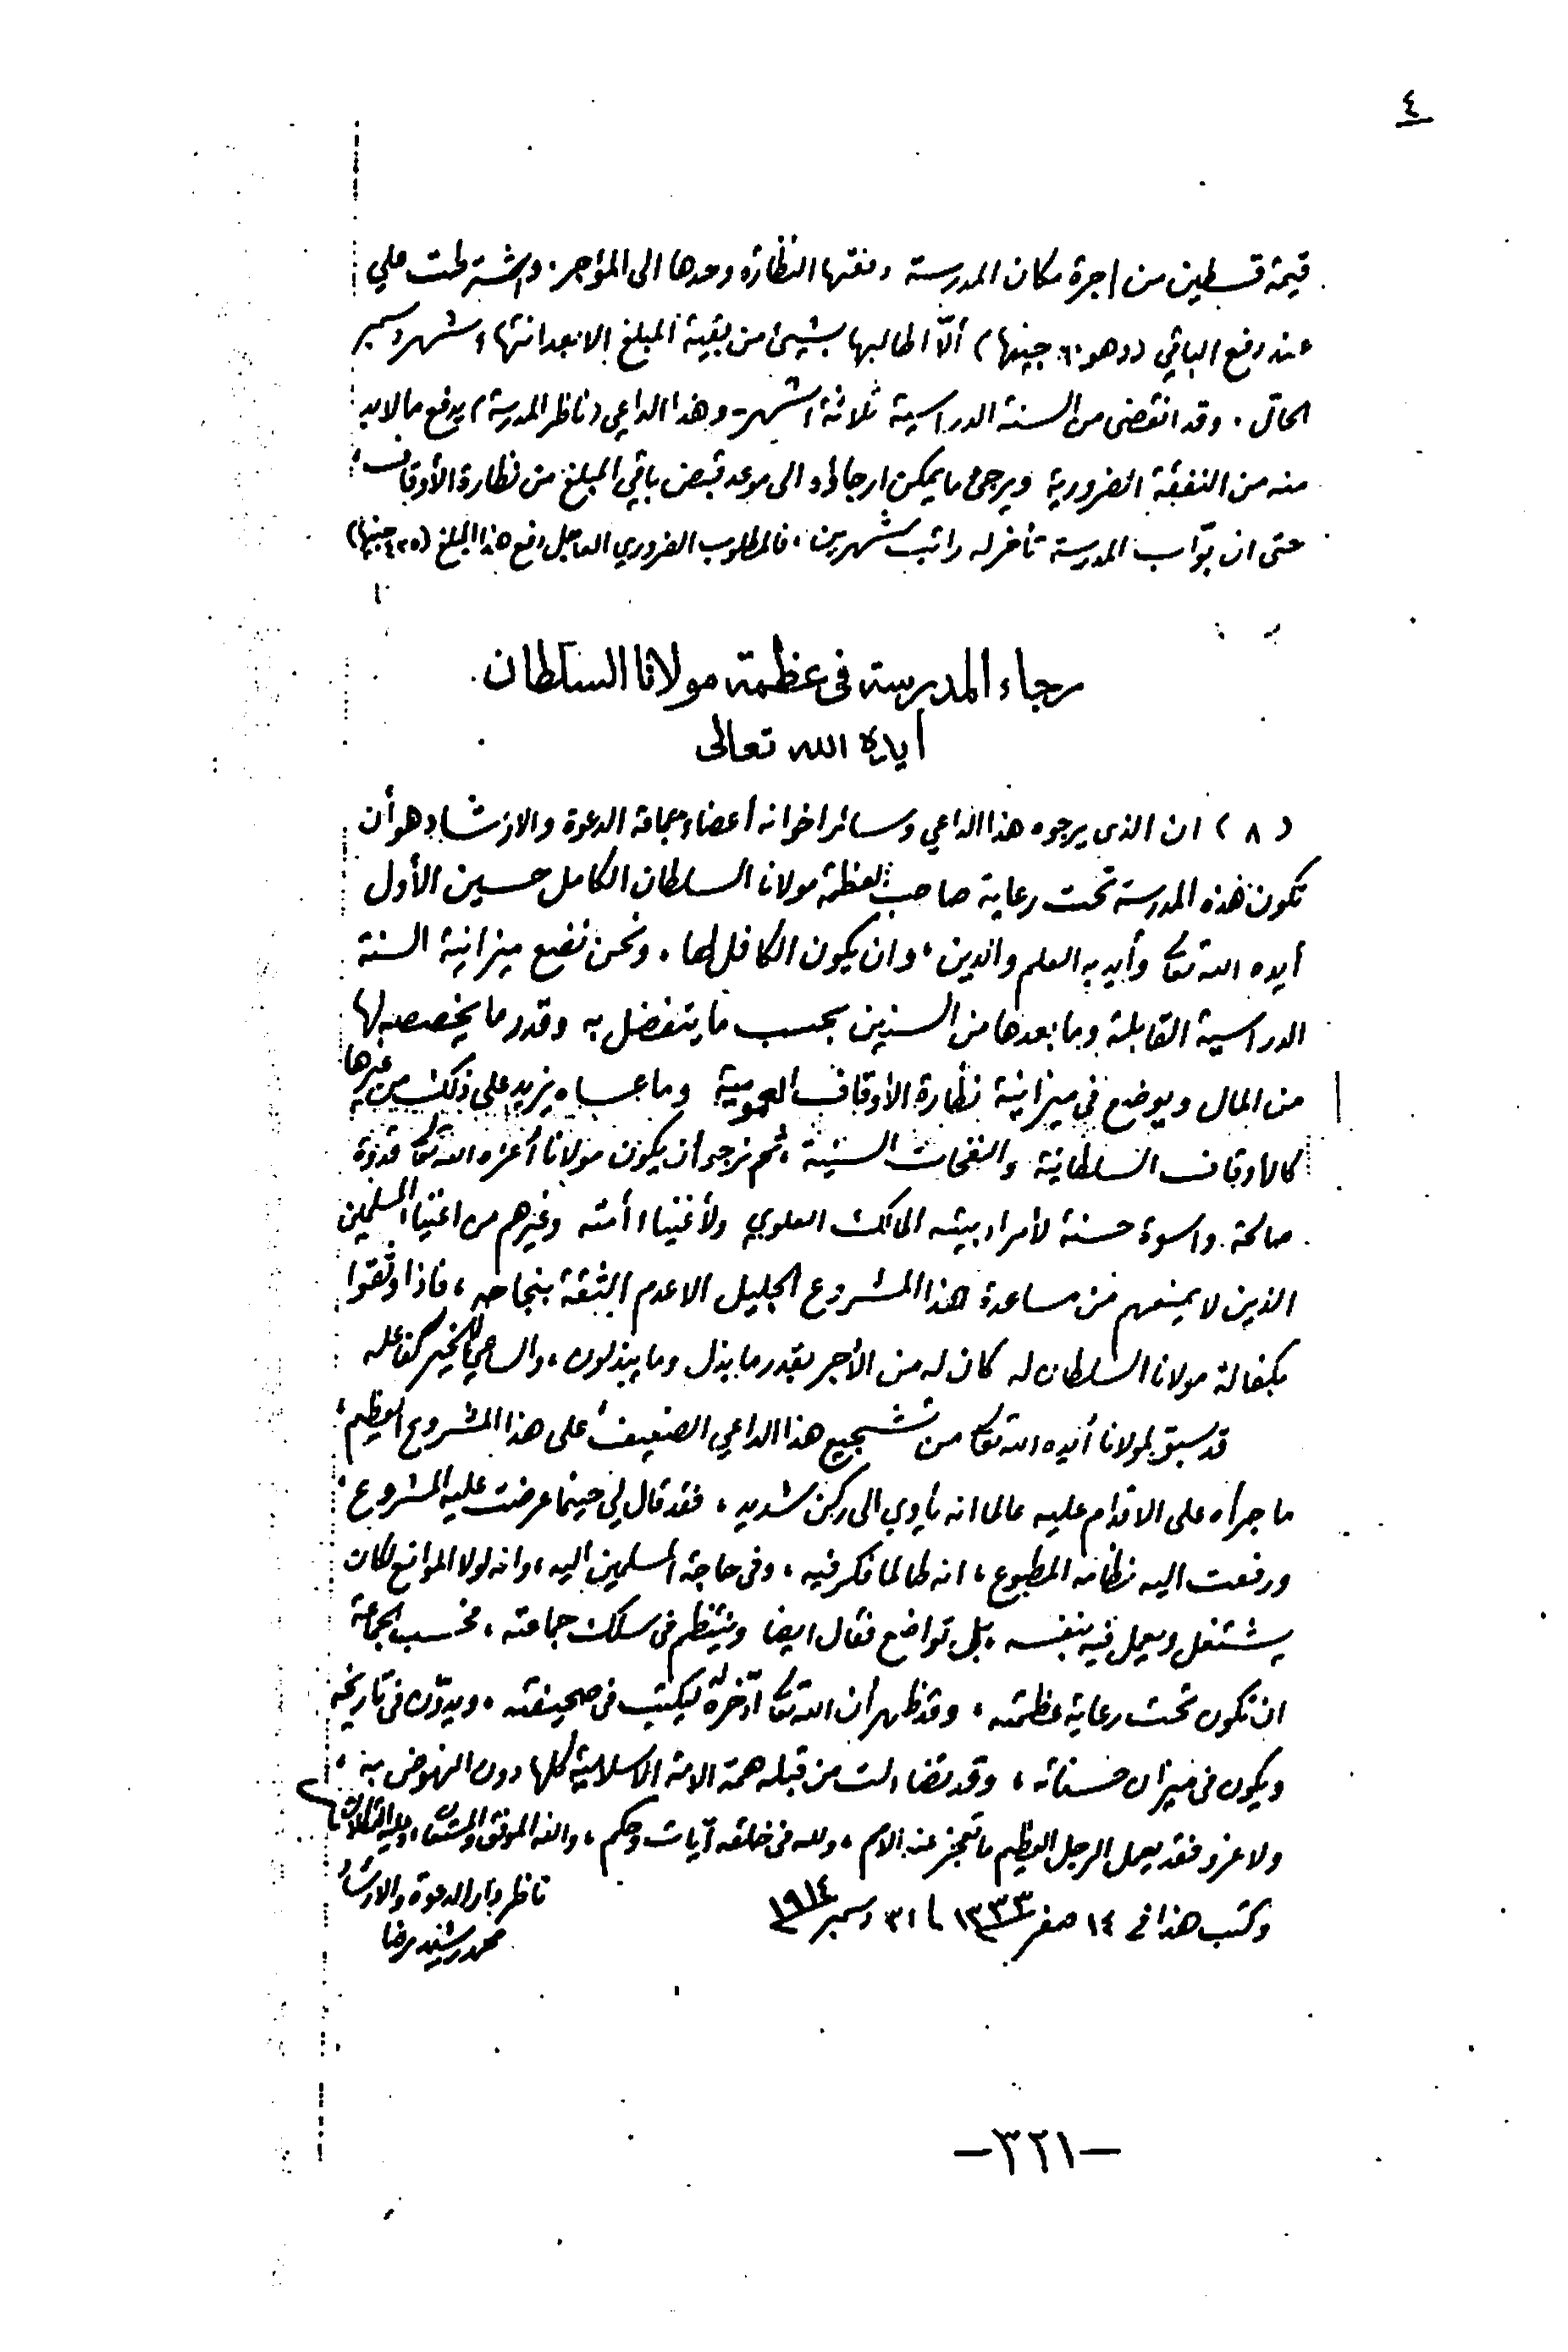 ٤
قيمة قسطين من اجرة مكان المدرسة دفعتها النظارة وحدها الى المؤجر. واشترطت علي
عند دفع الباقي (وهو ٦٠ جنيها) ألّا اطالبها بشيئ من بقية المبلغ الا بعد انتهاء شهر دسمبر
الحال. وقد انقضى من السنة الدراسية ثلاثة اشهر - وهذا الداعي (ناظر المدرسة) يدفع ما لا بد
منه من النفقة الضرورية ويرجئ ما يمكن ارجاؤه الى موعد قبض باقي المبلغ من نظارة الأوقاف،
حتى ان بوّاب المدرسة تأخر له راتب شهرين، فالمطلوب الضروري العاجل دفع هذا المبلغ (٤٢٥ جنيها)
رجاء المدرسة فى عظمة مولانا السلطان
أيده الله تعالى
(٨) ان الذى يرجوه هذا الداعي وسائر اخوانه أعضاء جماعة الدعوة والارشاد هو أن
تكون هذه المدرسة تحت رعاية صاحب العظمة مولانا السلطان الكامل حسين الأول
أيده الله تعا وأيد به العلم والدين، وان يكون الكافل لها. ونحن نضع ميزانية السنة
الدراسية القابلة وما بعدها من السنين بحسب ما يتفضل به وقدر ما يخصصه لها
من المال ويوضع فى ميزانية نظارة الأوقاف العمومية وما عساه يزيد على ذلك من غيرها
كالأوقاف السلطانية والنفحات السنية، ثم نرجو أن يكون مولانا أعزه الله تعا قدوة
صالحة واسوة حسنة لأمراء بيته المالك العلوي ولأغنياء أمته وغيرهم من اغنياء المسلمين
الذين لا يمنعهم من مساعدة هذا المشروع الجليل الا عدم الثقة بنجاحه، فاذا وثقوا
بكفالة مولانا السلطان له كان له من الأجر بقدر ما بذل وما يبذلون، والساعي بالخير كفاعله
قد سبق لمولانا أيده الله تعا من تشجيع هذا الداعي الضعيف على هذا المشروع العظيم،
ما جرأه على الاقدام عليه عالما انه يأوي الى ركن شديد، فقد قال لي حينما عرضت عليه المشروع،
ورفعت اليه نظامه المطبوع، انه طالما فكر فيه، وفى حاجة المسلمين اليه، وانه لولا الموانع لكان
يشتغل ويعمل فيه بنفسه، بل تواضع فقال ايضا وينتظم فى سلك جماعته، فحسب الجماعة
ان تكون تحت رعاية عظمته، وقد ظهر أن الله تعا ادّخره له ليكتب فى صحيفته، ويدوّن فى تاريخه
ويكون فى ميزان حسناته، وقد تضاءلت من قبله همة الامة الاسلامية كلها دون النهوض به،
ولا غرو فقد يعمل الرجل العظيم ما تعجز عنه الامم، ولله فى خلقه آيات وحكم، والله الموفق والمستعان، وعليه التكلان
وكتب هذا فى ١٤ صفر ١٣٣٣ ٣١ دسمبر ١٩١٤
ناظر دار الدعوة والارشاد
محمد رشيد رضا
-٣٢١-